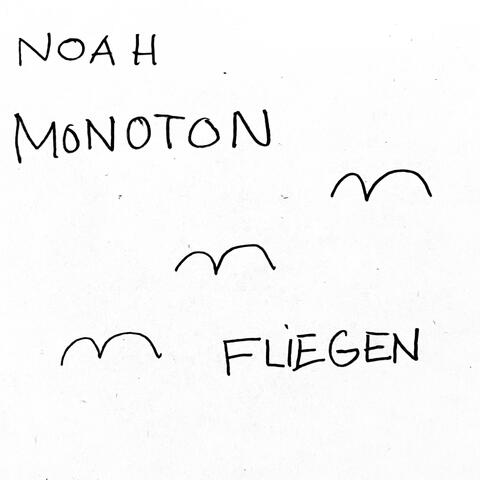 NOAH
MONOTON
FLiEGEN